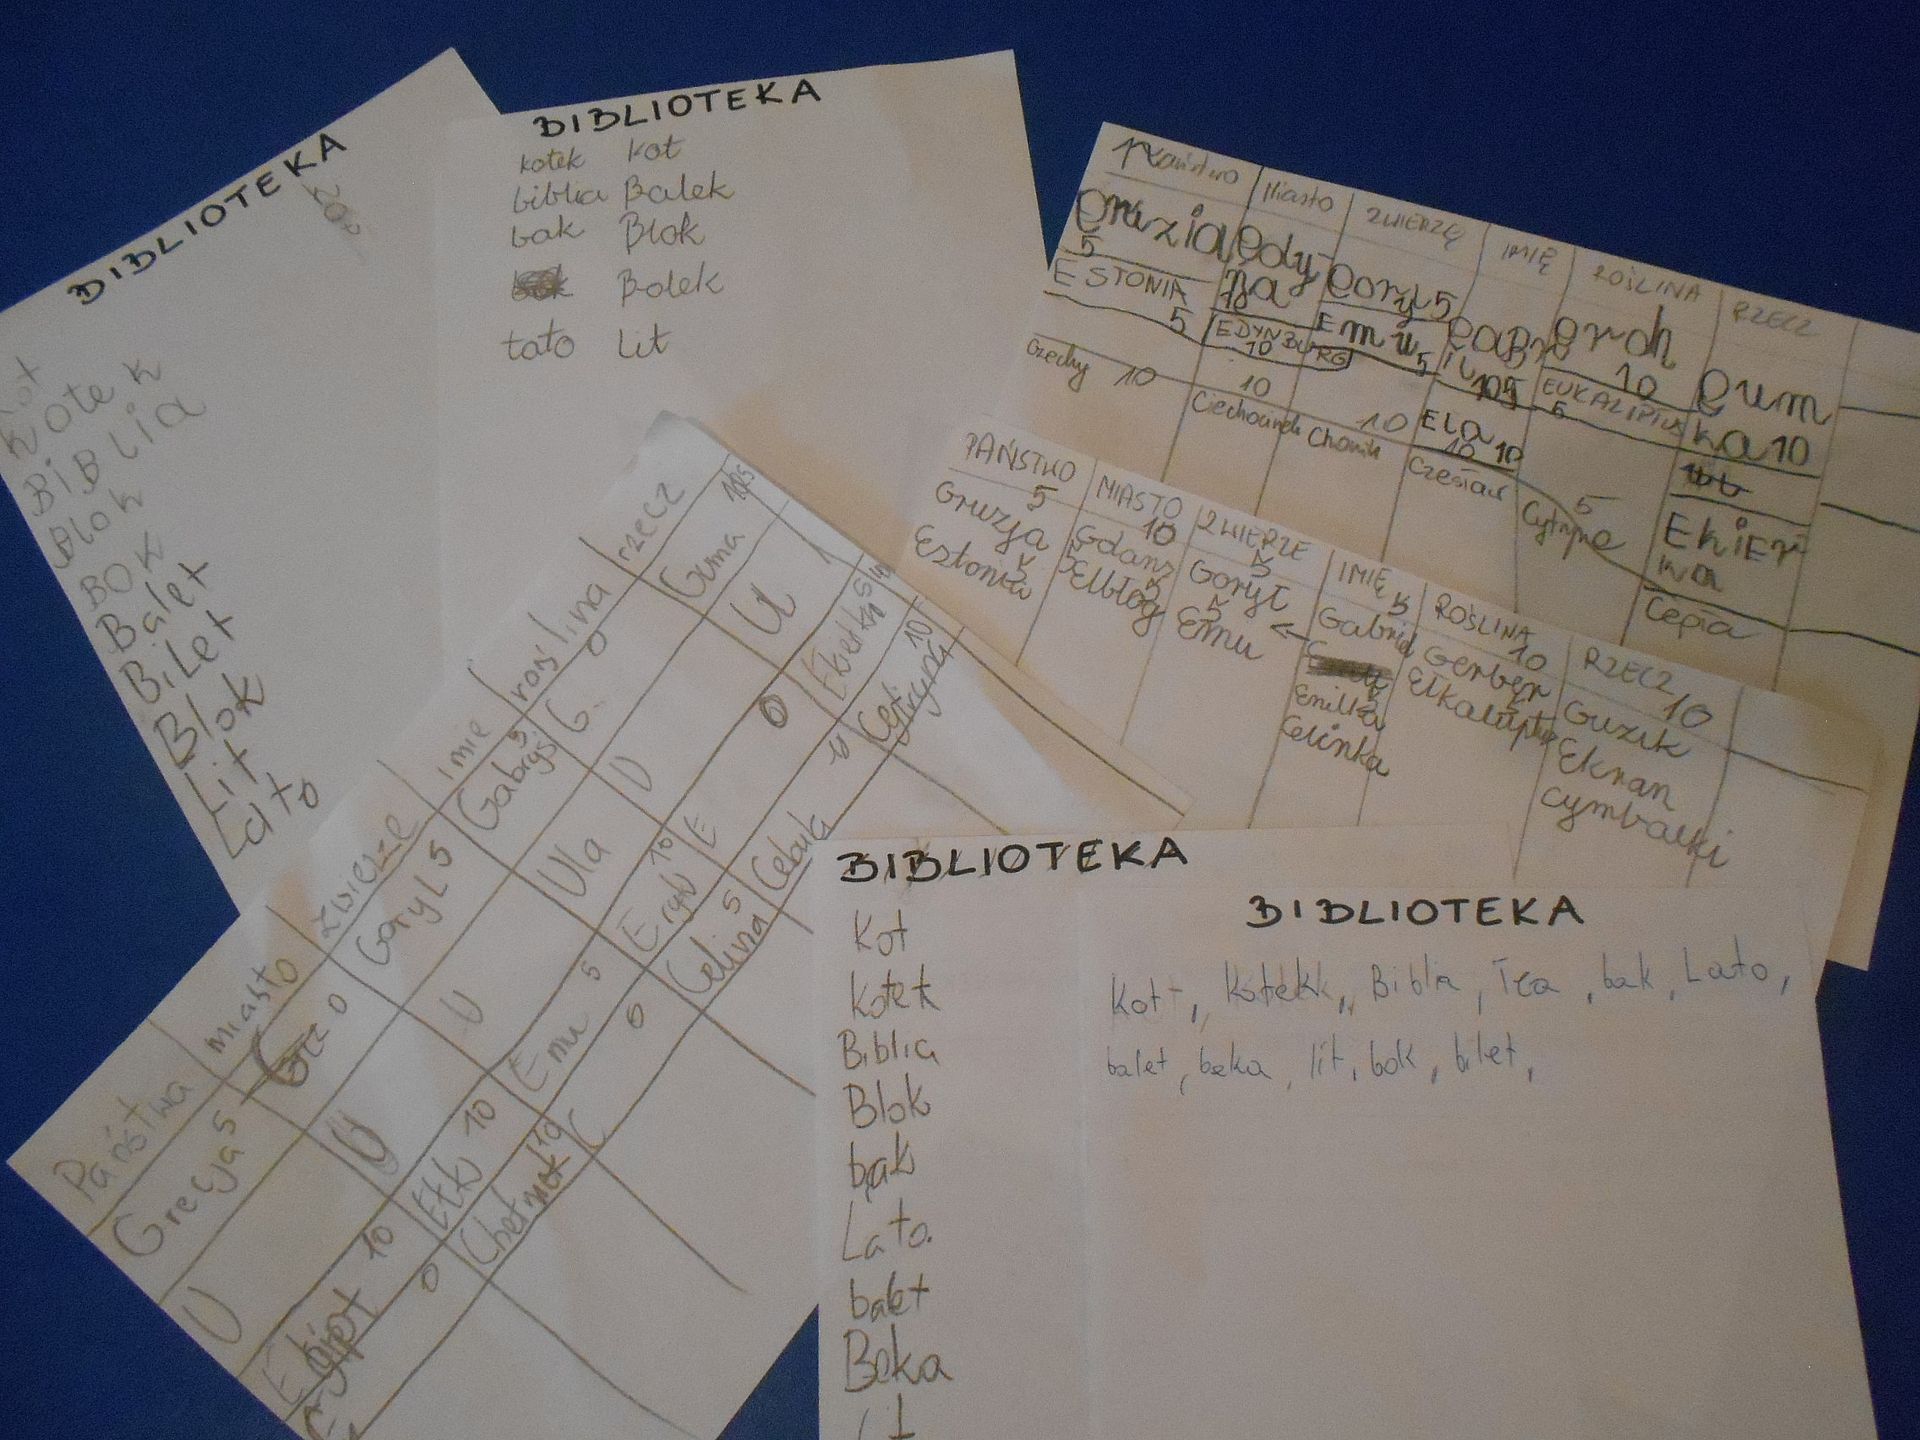 BIBLIOTEKA
Kotek
BiBLia
Blok
BOK
Balet
BiLet
Blok
Lit
Lato
BIBLIOTEKA
kotek kot
biblia Balek
bak Blok
Bolek
tato Lit
Miasto ZWIERZĘ IMIĘ ROŚLINA RZECZ
Gruzia Gdy Goryl 5 Gabry Groch Gum
5 nia 10 ś 10 ka 10
ESTONIA 5 EDYNBURG 10 Emu 5 Ela 10 EUKALIPTUS 5 Ekier
ka
Czechy 10 10 Ciechocinek 10 Chomik 10 Czesław 5 Cytryna
PAŃSTWO MIASTO ZWIERZE IMIĘ ROŚLINA RZECZ
5 10 5 5 10 10
Gruzja Gdańs Goryl Gabriel Gerber Guzik
Estonia Elbłog Emu Emilka Elkaliptus Ekran
Celinka cymbałki
Państwa miasto zwierzę imie roślina rzecz
Grecja 5 0 Goryl 5 Gabryś 5 G. 0 Guma 10
U U U Ula U U
Egipt 10 Ełk 10 Emu 5 Eryk 10 E 0 Ekierka 5
0 Chełmek 10 C 0 Celina 5 Cebula 10 Cytryna 10
BIBLIOTEKA
Kot
Kotek
Biblia
Blok
bak
Lato.
balet
Beka
BIBLIOTEKA
Kot, Kotek, Biblia, bak, Lato,
balet, beka, lit, bok, bilet,